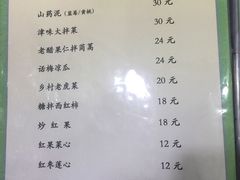 30 元
山药泥（蓝莓/黄桃）
30 元
津味大拌菜
24 元
老醋果仁拌茼蒿
24 元
话梅凉瓜
20 元
乡村老虎菜
18 元
糖拌西红柿
18 元
炒红果
12 元
红果菜心
12 元
红枣莲心